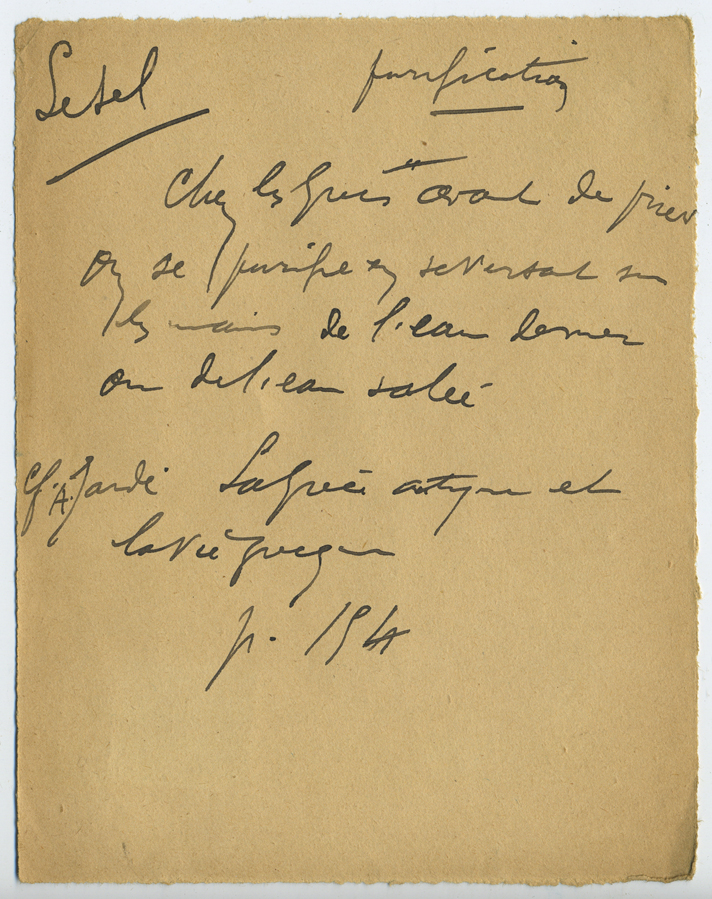 Le sel purification
Chez les Grecs " avant de prier
on se purifie en se versant sur
les mains de l'eau de mer
ou de l'eau salée
Cf. A. Jardé La Grèce antique et
la vie grecque
p. 194